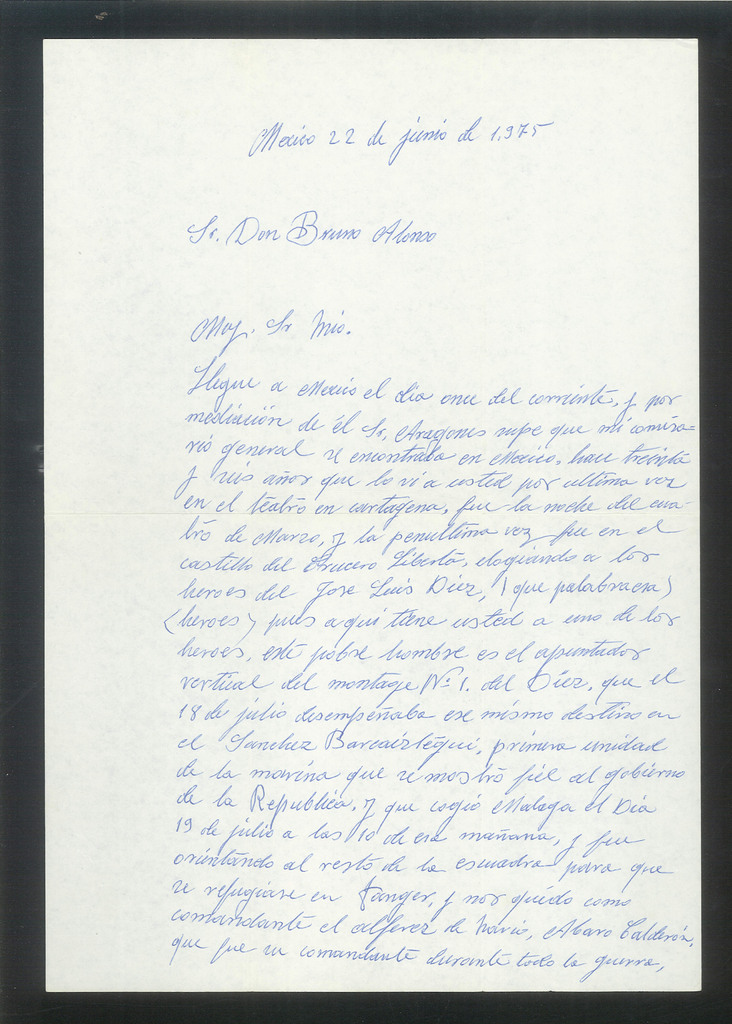 Mexico 22 de junio de 1.975
Sr. Don Bruno Alonso
Muy. Sr mio.
Llegue a Mexico el dia once del corriente, y por
mediación de él Sr, Aragones supe que mi comisa-
rio general se encontraba en Mexico, hace treinta
y seis años que lo vi a usted por ultima vez
en el teatro en cartagena, fue la noche del cua-
tro de Marzo, y la penultima vez fue en el
castillo del Crucero Libertá, elogiando a los
heroes del Jose Luis Diez, (que palabraesa)
(heroes) pues aqui tiene usted a uno de los
heroes, este pobre hombre es el apuntador
vertical del montage Nº 1. del Diez, que el
18 de julio desempeñaba ese mismo destino en
el Sanchez Barcaiztegui, primera unidad
de la marina que se mostró fiel al gobierno
de la Republica, y que cogió Malaga el Dia
19 de julio a las 10 de esa mañana, y fue
orientando al resto de la escuadra para que
se refugiase en Tanger, y nos quedo como
comandante el alferez de navio, Alvaro Calderón,
que fue su comandante durante toda la guerra,